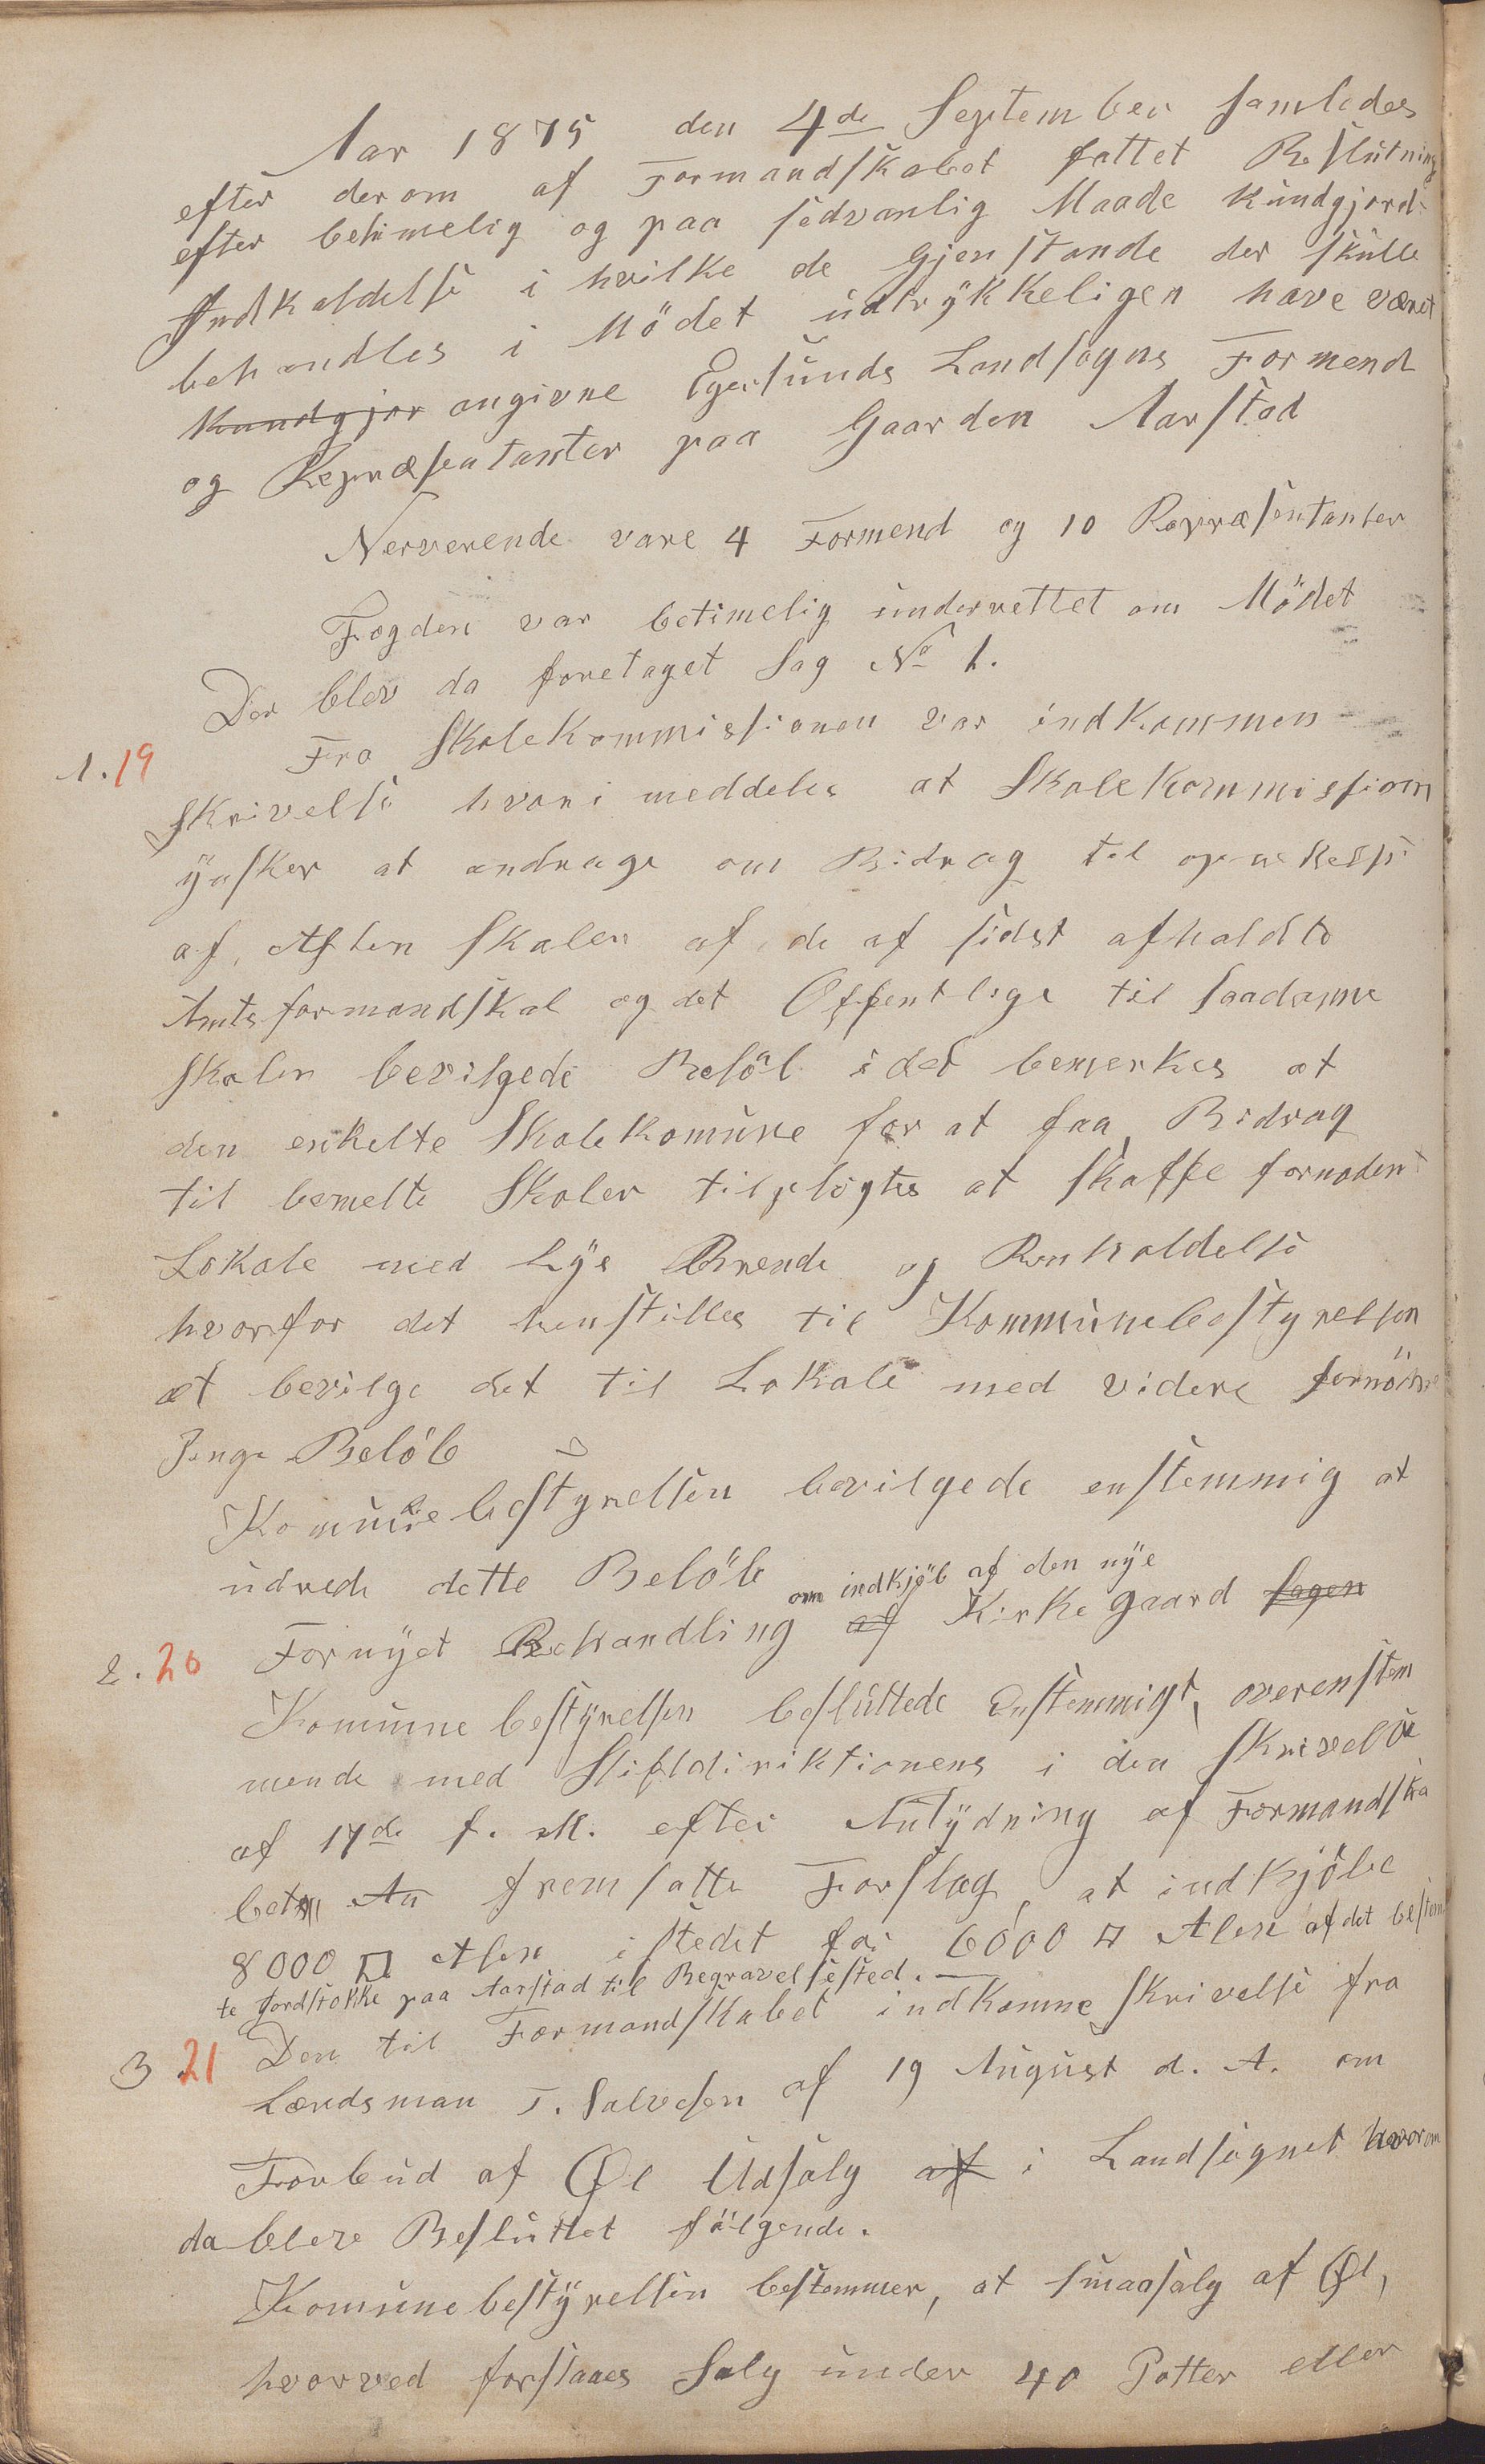 Aar 1875 den 4de September samledes
efter derom af Formandskabet fattet Beslutning
efter betimelig og paa sedvanlig Maade kundgjord
Indkaldelse i hvilke de Gjenstande der skulle
behandles i Mödet udtrykkeligen have været
Kundgjor angivne Egersunds Landsogns Formend
og Repræsentanter paa Gaarden Aarstad
Nerverende vare 4 Formend og 10 Repræsentanter
Fogden var betimelig underrettet om Mödet
Der blev da foretaget Sag No 1.
1. 19 Fra Skolekommissionen var indkommen
Skrivelse hvori meddeles at Skolekommissionen
ynsker at andrage om Bidrag til oprettelse
af Aften Skoler af de af sidst afholdte
Amtsformandskab og det Offentlige til saadanne
Skoler bevilgede Belöb idet bemerkes at
den enkelte Skolekomune for at faa Bidrag
til bemelte Skoler tilpligtes at skaffe fornøden
Lokale med Lys Brende og Renholdelse
hvorfor det henstilles til Kommunebestyrelsen
at bevilge det til Lokale med videre fornödne
Penge Belöb
Komunebestyrelsen bevilgede enstemmig at
udrede dette Belöb
om indkjøb af den nye
2. 20 Fornyet Behandling af Kirkegaard Sagen
Komunebestyrelsen besluttede Enstemmigt, overenstem
mende med Stiftdiriktionens i den Skrivelse
af 17de f. M. efter Antydning af Formandska
bet An fremsatte Forslag, at indkjöbe
8000 □ Alen istedet for 6000 □ Alen af det bestem
te Jordstokke paa Aarstad til Begravelsested.
3 21 Den til Formandskabet indkomne Skrivelse fra
Lændsman T. Salvesen af 19 August d. A. om
Forbud af Øl Udsalg af i Landsognet hvorom
da blev Besluttet fölgende.
Komunebestyrelsen bestemmer, at smaasalg af Øl,
hvorved forstaaes Salg under 40 Potter eller